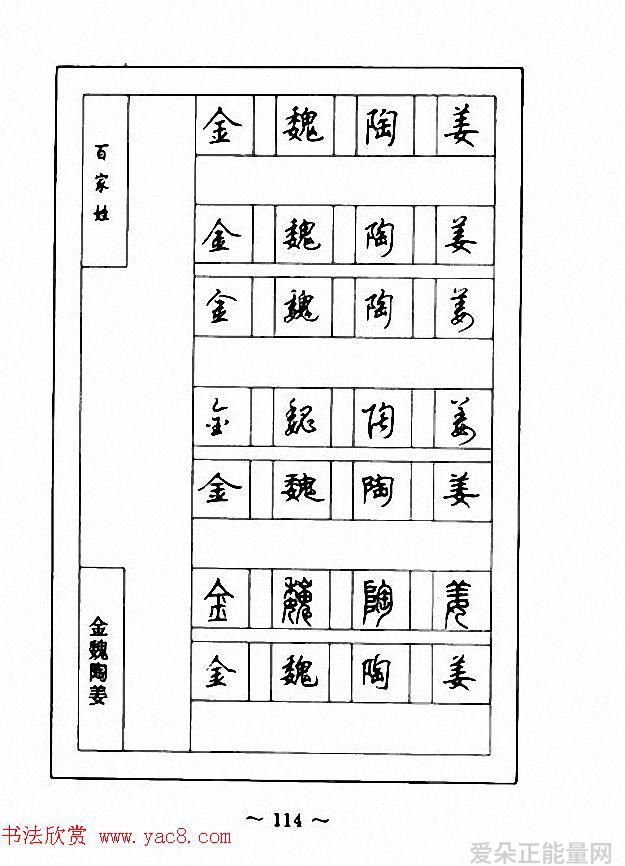 百家姓
金 魏 陶 姜
金 魏 陶 姜
金 魏 陶 姜
金 魏 陶 姜
金 魏 陶 姜
金 魏 陶 姜
金 魏 陶 姜
金魏陶姜
~ 114 ~
书法欣赏 www.yac8.com
爱朵正能量网